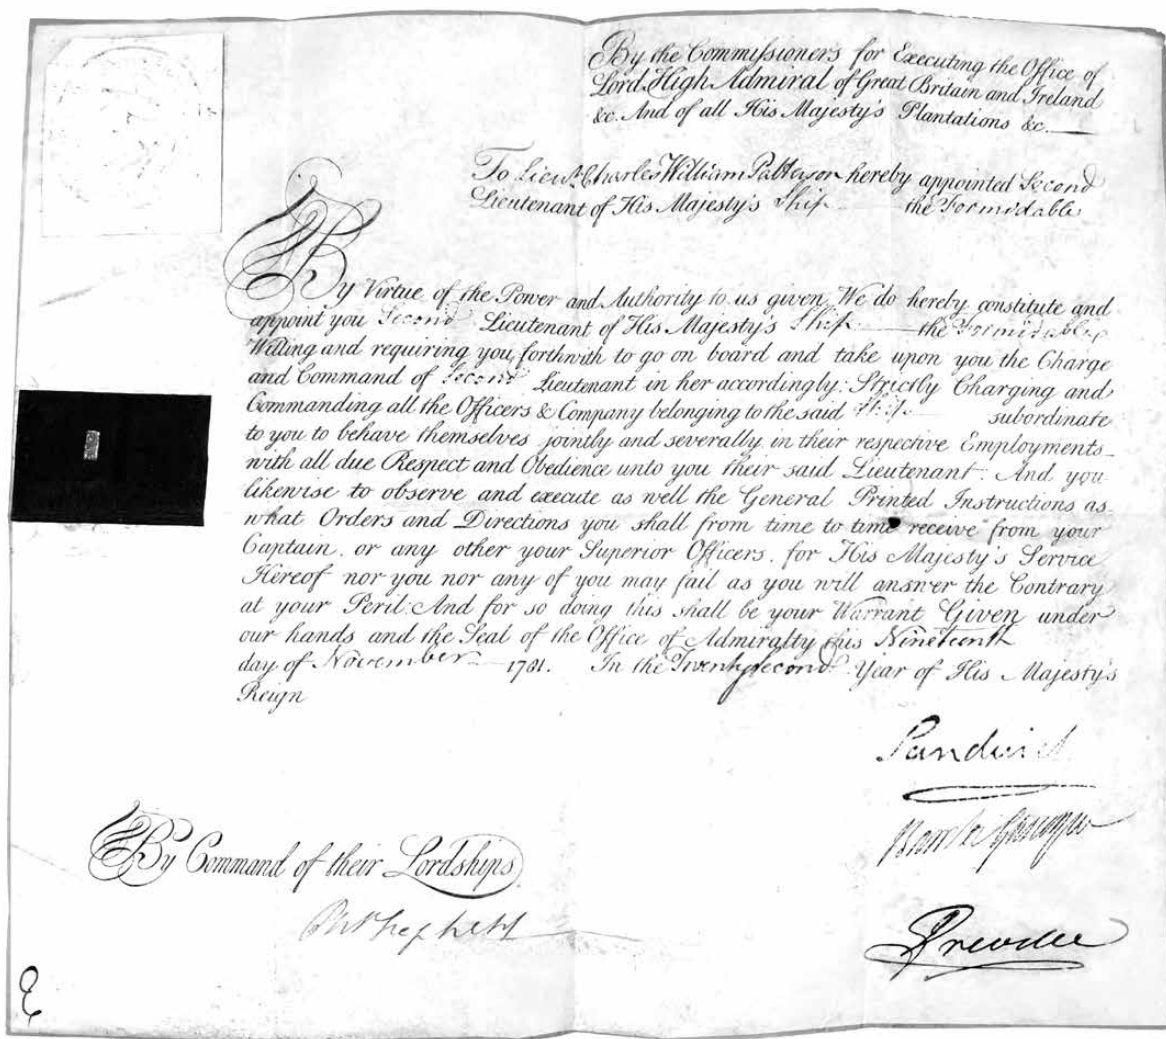 By the Commissioners for Executing the Office of
Lord High Admiral of Great Britain and Ireland
&c. And of all His Majesty's Plantations &c.
To Lieut. Charles William Patterson hereby appointed Second
Lieutenant of His Majesty's Ship the Formidable
By Virtue of the Power and Authority to us given We do hereby constitute and
appoint you Second Lieutenant of His Majesty's Ship the Formidable
Willing and requiring you forthwith to go on board and take upon you the Charge
and Command of Second Lieutenant in her accordingly. Strictly Charging and
Commanding all the Officers & Company belonging to the said Ship subordinate
to you to behave themselves jointly and severally in their respective Employments
with all due Respect and Obedience unto you their said Lieutenant. And you
likewise to observe and execute as well the General Printed Instructions as
what Orders and Directions you shall from time to time receive from your
Captain, or any other your Superior Officers, for His Majesty's Service
Hereof nor you nor any of you may fail as you will answer the Contrary
at your Peril. And for so doing this shall be your Warrant Given under
our hands and the Seal of the Office of Admiralty this Nineteenth
day of November 1781. In the Twenty second Year of His Majesty's
Reign
Sandwich
By Command of their Lordships